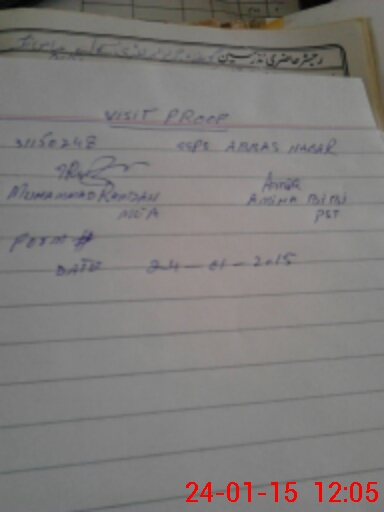 رجسٹر حاضری مدرسین
VISIT PROOF
31150248 GGPS ABBAS NAGAR
MUHAMMAD RAMZAN AMINA BIBI
MEA PST
Form #
DATE 24-01-2015
24-01-15 12:05